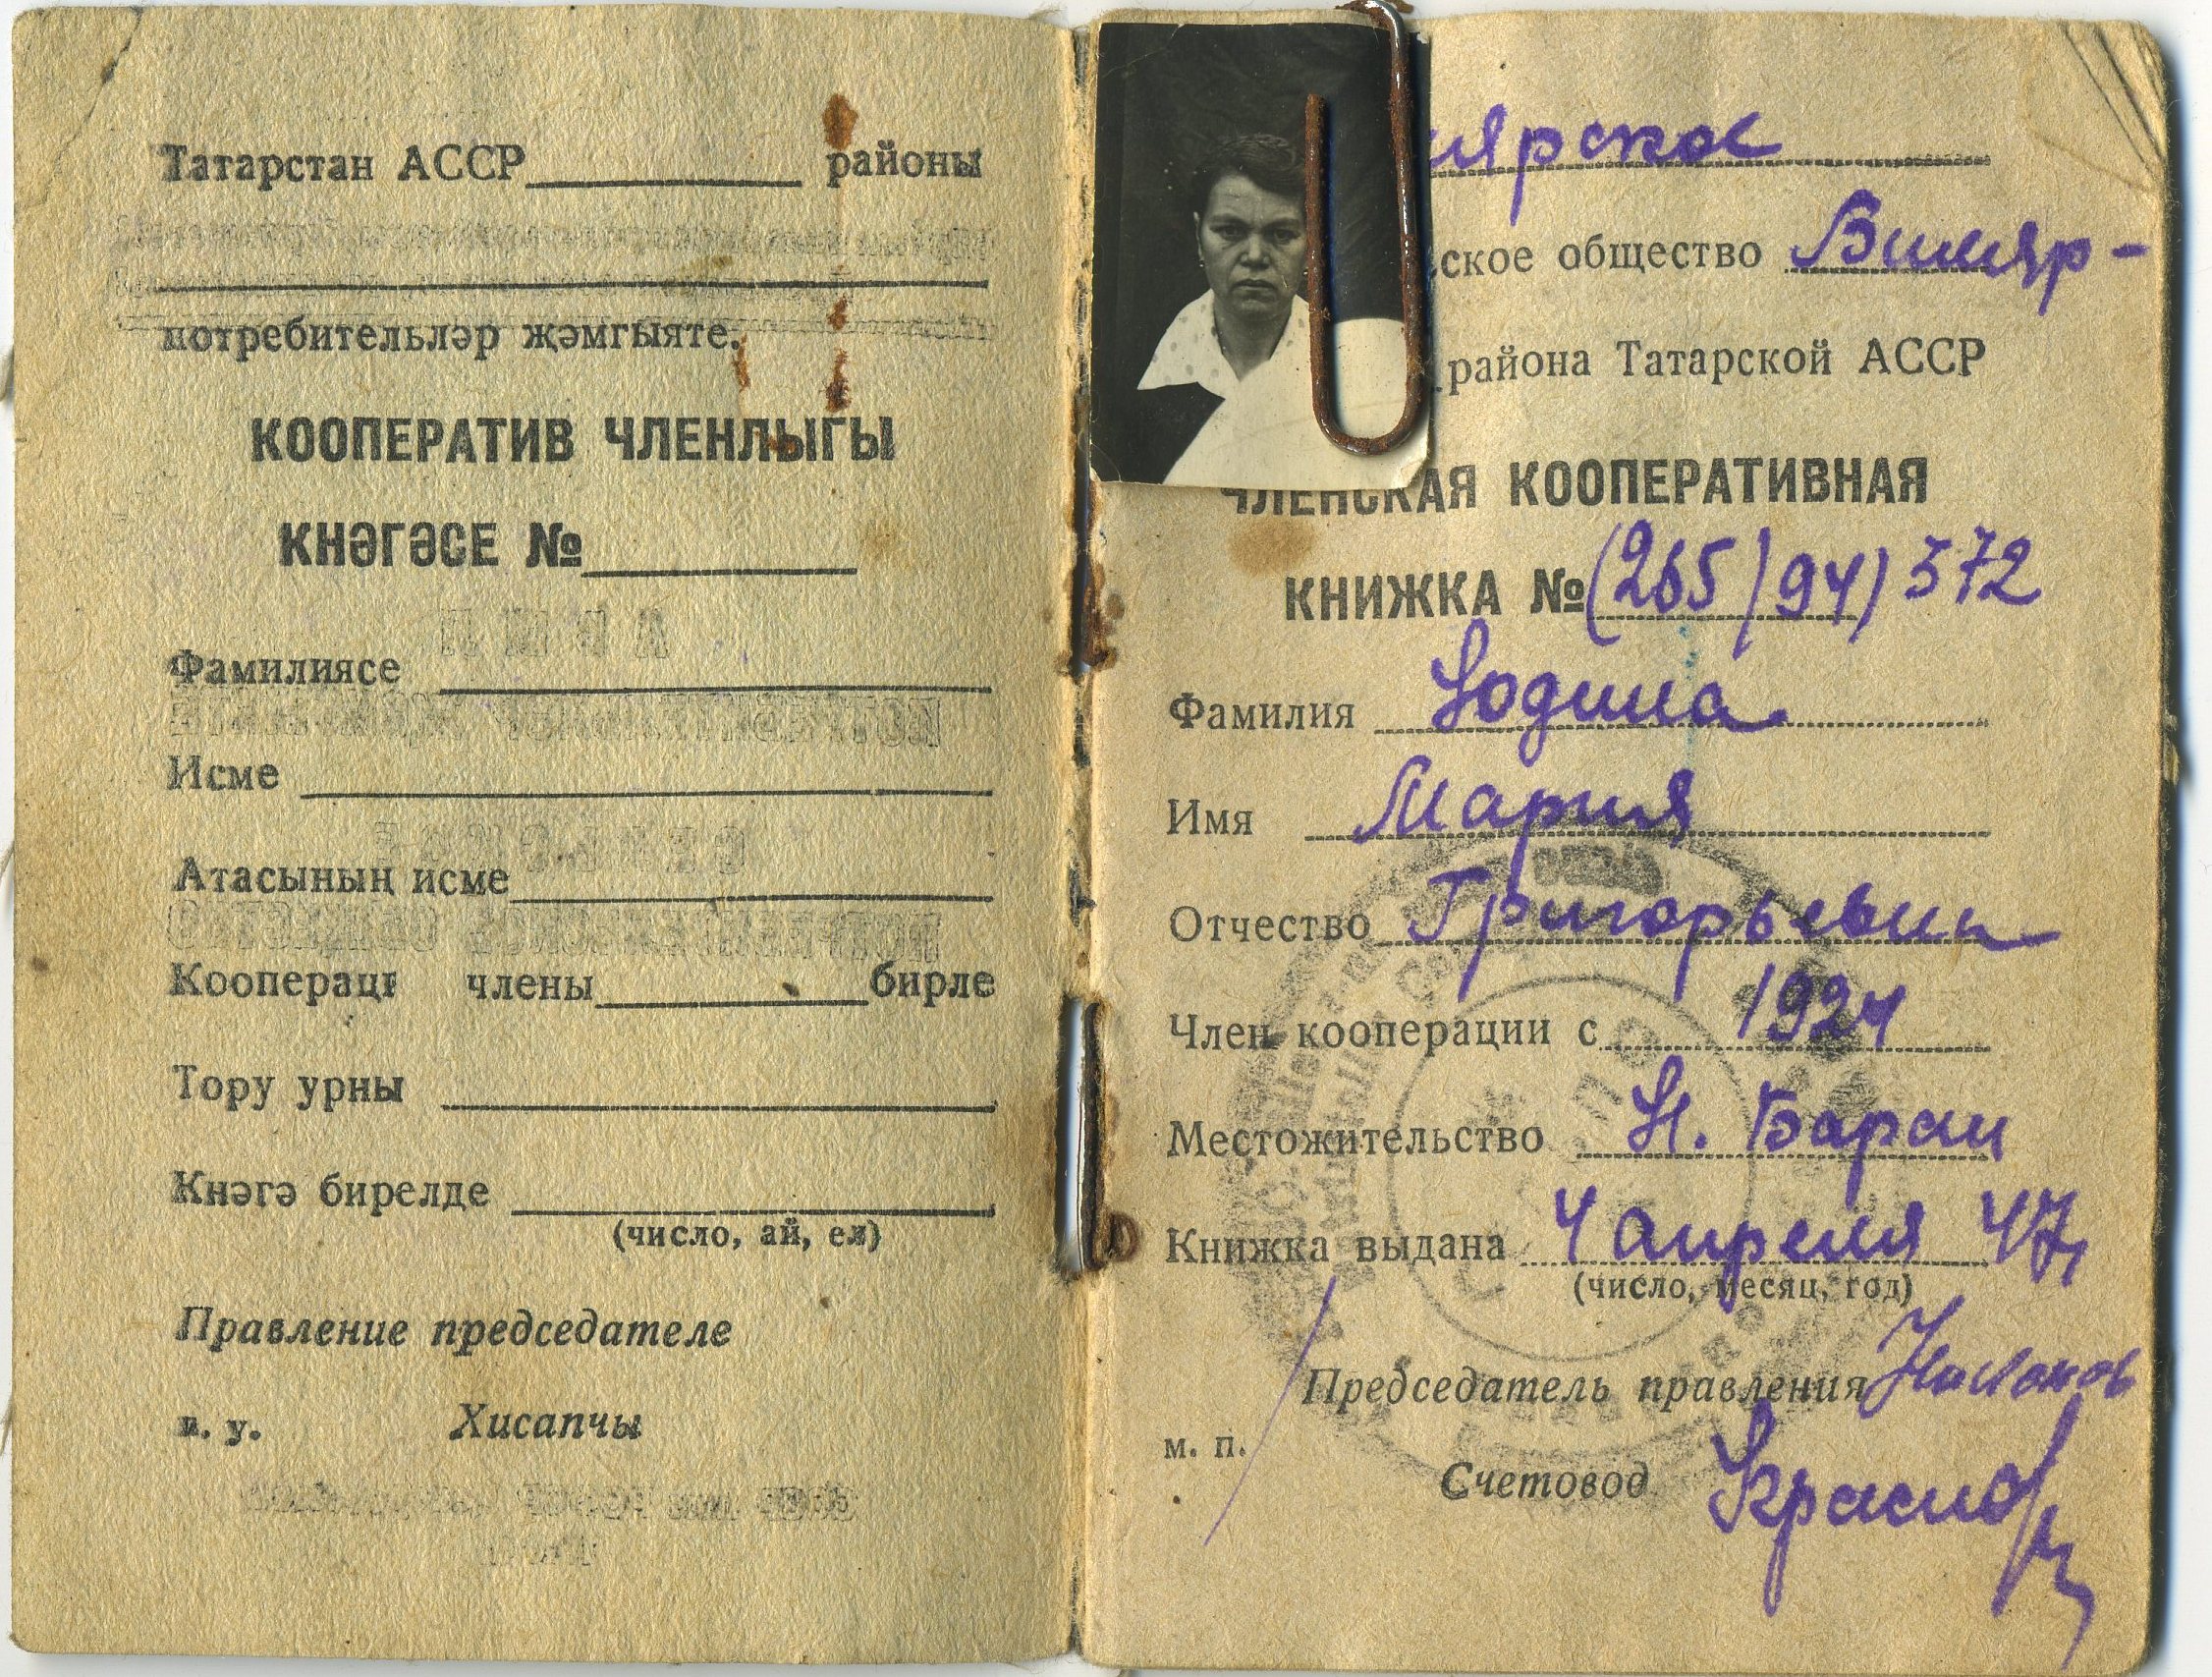 Татарстан АССР районы
потребительләр җәмгыяте.
КООПЕРАТИВ ЧЛЕНЛЫГЫ
КНӘГӘСЕ №
Фамилиясе
Исме
Атасының исме
Кооперация члены бирле
Тору урны
Кнәгә бирелде
(число, ай, ел)
Правление председателе
м. у. Хисапчы
лярское
ское общество Билляр-
района Татарской АССР
ЧЛЕНСКАЯ КООПЕРАТИВНАЯ
КНИЖКА № (265/94) 372
Фамилия Юдина
Имя Мария
Отчество Григорьевн
Член кооперации с 1924
Местожительство Н. Баран
Книжка выдана 4 апреля 47
(число, месяц, год)
Председатель правления
м. п.
Счетовод